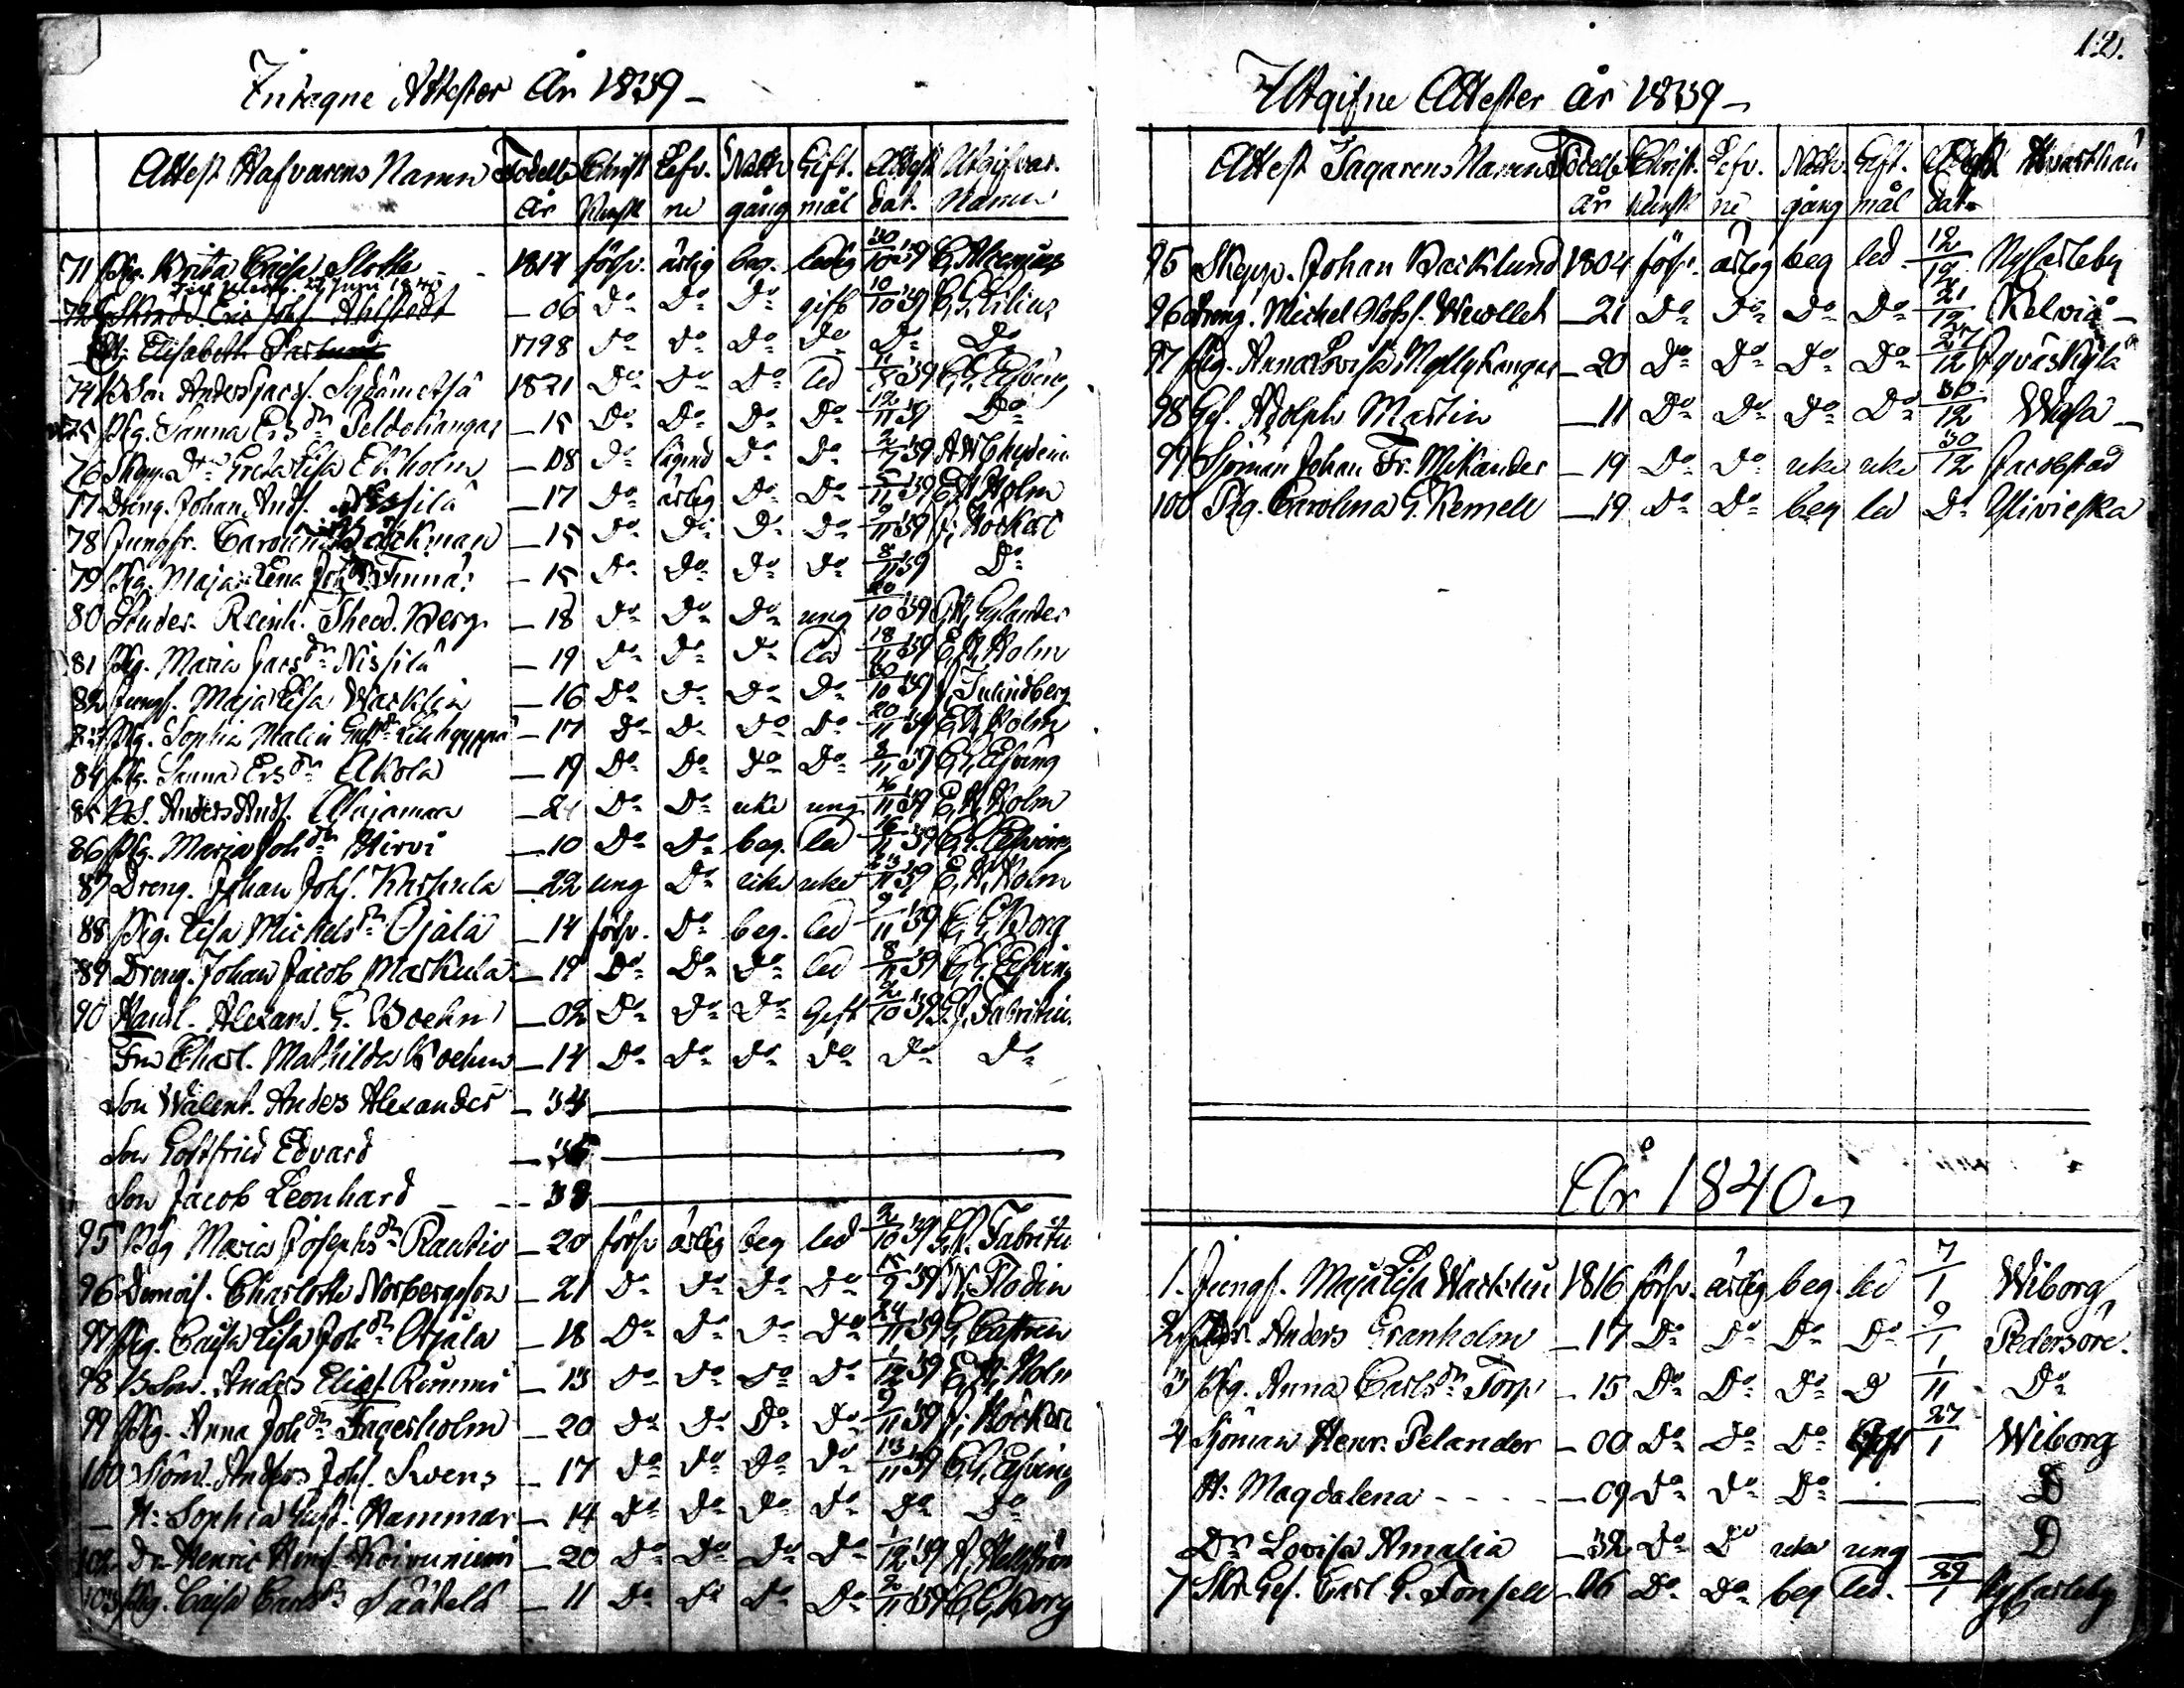 Intagne Attester År 1839 –
Attest Hafvarens Namn Födelse År Christ Kunsk Lefv. ne Nattv gång Gift. mål Attest dat. Utgifvar. Namn
71 Pig. Brita Caisa Slotte 1814 förSv. ärlig beg. ledig 30/10 39 C. Alcenius
72 Eric Johs. Ahlstedt – 06 Do Do Do gift 10/10 39
H. Elisabeth 1798 Do Do Do Do Do Do
74 BSon Anders Jacs. Sydämetsä 1821 Do Do Do led 11/ 39 C. G. Elfving
75 Pig. Sanna Ersdr Peldokangas – 15 Do Do Do Do 12/11 39 Do
76 Skepp. Dtr Greta Lisa Ekholm – 08 Do Do Do 2/ 39 A W Chydenius
77 Dreng. Johan Ands. Nissilä – 17 Do ärlig Do Do 5/11 39 E. A. Holm
78 Jungfr. Carolina Böckman – 15 Do Do Do Do 9/11 39 J. Höckert
79 Pig. Maja Lena Johdr Finnä – 15 Do Do Do Do 8/11 39 Do
80 Studer. Reinh. Theod. Berg – 18 Do Do Do ung 20/10 39 Gylander
81 Pig. Maria Jacsdr Nissilä – 19 Do Do Do led 18/11 39 E. A. Holm
82 Jungf. Maja Lisa Wacklin – 16 Do Do Do Do 30/10 39 J. Julindberg
83 Pig. Sophia Malin – 17 Do Do Do Do 20/11 39 E. A. Holm
84 Pig. Sanna Ersdr Akola – 19 Do Do Do Do 8/11 39 C. G. Elfving
85 BS. Anders Ands. Alajamaa – 21 Do Do icke ung 16/11 39 E. A. Holm
86 Pig. Maria Johdr Hirvi – 10 Do Do beg. led 16/11 39 C. G. Elfving
87 Dreng. Johan Johs. Kaskula – 22 ung Do icke icke 23/11 39 E. A. Holm
88 Pig. Lisa Michelsdr Ojala – 14 försv. Do beg. led 9/11 39 C. G. Borg
89 Dreng. Johan Jacob Maskula – 19 Do Do Do led 8/11 39 C. G. Elfving
90 Handl. Alexand. G. Boehm – 02 Do Do Do Gift 2/10 39 G. J. Fabritius
Fru Charl. Mathilda Boehm – 14 Do Do Do Do Do Do
Son Walent. Anders Alexander – 34
Son Gottfried Edvard – 36
Son Jacob Leonhard – – 38
95 Pig Maria Josephsdr Rautio – 20 försv ärlig beg led 2/10 39 Fabritiu
96 Demois. Charlotte Norbergsson – 21 Do Do Do Do 15/9 39 N. Flodin
97 Pig. Caisa Lisa Johdr Ojala – 18 Do Do Do Do 24/11 39
98 BSon. Anders Elias. Rimmi – 13 Do Do Do Do 1/12 39 E. A. Holm
99 Pig. Anna Johdr Fagerholm – 20 Do Do Do Do 9/11 39 J. Höckert
100 Sjöm. Anders Johs. Svens – 17 Do Do Do Do 13/11 39 C. G. Elfving
– H: Sophia Gust. Hammar – 14 Do Do Do Do Do Do
102 Dr. Henric Koivuniemi – 20 Do Do Do Do 1/12 39 A. Hellström
103 Pig. Caisa Carlsdr Säätelä – 11 Do Do Do Do 2/11 39 C. G. Borg
12.
Utgifne Attester år 1839 –
Attest Tagarens Namn Födelse År Christ. Kunsk Lefv. ne Nattv. gång Gift. mål Attest dat. Hvarthän
95 Skepp. Johan Backlund 1804 försv. ärlig beg led 12/12 NyCarleby
96 Dreng. Michel Wewllet – 21 Do Do Do Do 21/12 Kelviå –
97 Pig. Anna Lovisa Myllykangas – 20 Do Do Do Do 27/12 Jyväskylä
98 Ges. Adolph Martin – 11 Do Do Do Do 30/12 Wasa –
99 Sjöman Johan Fr. Mikander – 19 Do Do icke icke 30/12 Jacobstad
100 Pig. Carolina G. Kemell – 19 Do Do beg led Do Ylivieska
År 1840
1. Jungf. Maja Lisa Wacklin 1816 försv. ärlig beg. led 7/1 Wiborg
2. Anders Granholm – 17 Do Do Do Do 9/1 Pedersöre.
3 Pig. Anna Carlsdr Torp – 15 Do Do Do D 1/11 Do
4 Sjöman Henr. Pelander – 00 Do Do Do Gift 27/1 Wiborg
H: Magdalena – – – – – 09 Do Do Do — — D
Dr Lovisa Amalia – 32 Do D icke ung — D
7 Skr. Ges. Carl G. Fonsell – 06 Do Do beg led. 29/1 NyCarleby